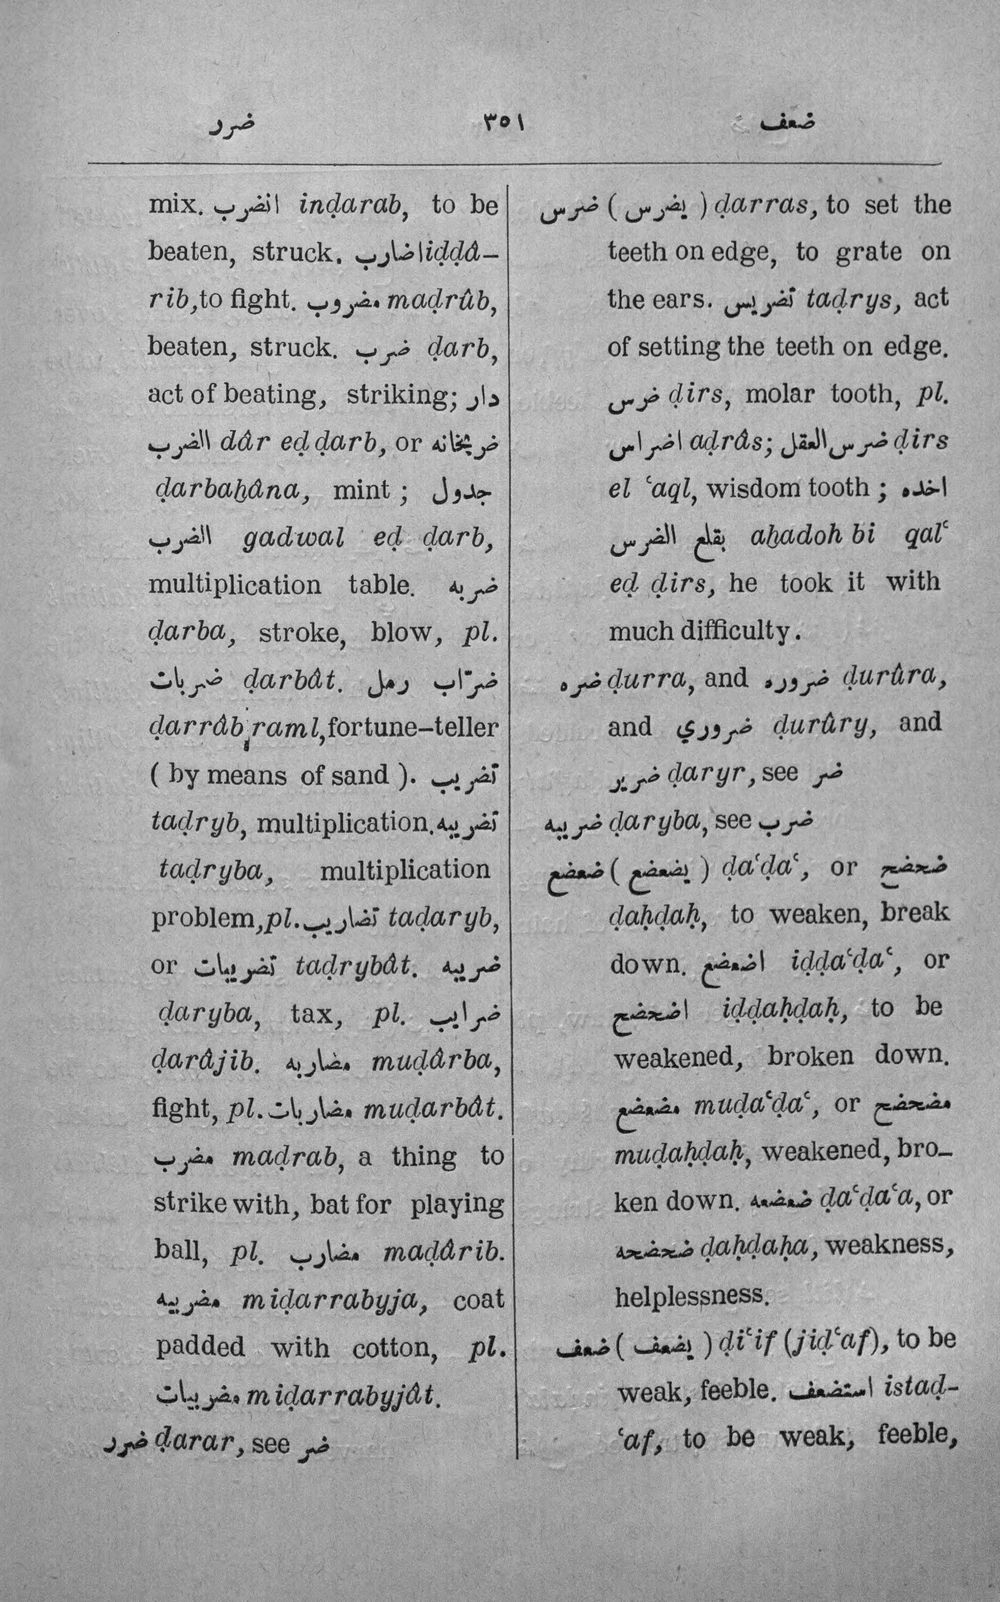 ضرر ٣٥١ ضعف
mix. انضرب inḍarab, to be
beaten, struck. اضارب iḍḍâ-
rib, to fight. مضروب maḍrûb,
beaten, struck. ضرب ḍarb,
act of beating, striking; دار
الضرب dâr eḍ ḍarb, or ضربخانه
ḍarbaḫâna, mint; جدول
الضرب gadwal eḍ ḍarb,
multiplication table. ضربه
ḍarba, stroke, blow, pl.
ضربات ḍarbât. ضرّاب رمل
ḍarrâb raml, fortune-teller
( by means of sand ). تضريب
taḍryb, multiplication. تضريبه
taḍryba, multiplication
problem, pl. تضاريب taḍaryb,
or تضريبات taḍrybât. ضريبه
ḍaryba, tax, pl. ضرايب
ḍarâjib. مضاربه muḍârba,
fight, pl. مضاربات muḍarbât.
مضرب maḍrab, a thing to
strike with, bat for playing
ball, pl. مضارب maḍârib.
مضربيه miḍarrabyja, coat
padded with cotton, pl.
مضربيات miḍarrabyjât.
ضرر ḍarar, see ضر
ضرس ( يضرس ) ḍarras, to set the
teeth on edge, to grate on
the ears. تضريس taḍrys, act
of setting the teeth on edge.
ضرس ḍirs, molar tooth, pl.
اضراس aḍrâs; ضرس العقل ḍirs
el ʿaql, wisdom tooth; اخده
بقلع الضرس aḫadoh bi qalʿ
eḍ ḍirs, he took it with
much difficulty.
ضره ḍurra, and ضروره ḍurûra,
and ضروري ḍurûry, and
ضرير ḍaryr, see ضر
ضريبه ḍaryba, see ضرب
ضعضع ( يضعضع ) ḍaʿḍaʿ, or ضحضح
ḍaḥḍaḥ, to weaken, break
down. اضعضع iḍḍaʿḍaʿ, or
اضحضح iḍḍaḥḍaḥ, to be
weakened, broken down.
مضعضع muḍaʿḍaʿ, or مضحضح
muḍaḥḍaḥ, weakened, bro-
ken down. ضعضعه ḍaʿḍaʿa, or
ضحضحه ḍaḥḍaḥa, weakness,
helplessness.
ضعف ( يضعف ) ḍiʿif (jiḍʿaf), to be
weak, feeble. استضعف istaḍ-
ʿaf, to be weak, feeble,